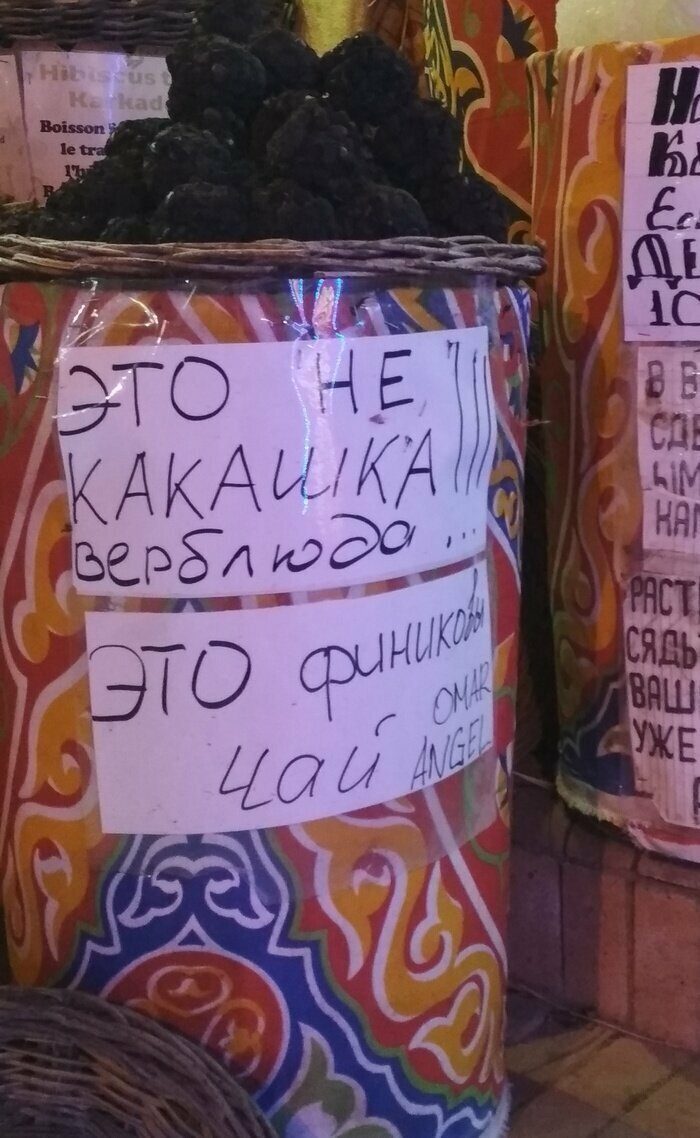 Hibiscus
Karkad
Boisson
le tra
ЭТО НЕ
КАКАШКА !!!
верблюда ...
ЭТО финиковы
чай
OMAR
ANGEL
10
В В
СДЕ
ЫМ
НА
РАСТ
СЯДЬ
ВАШ
УЖЕ